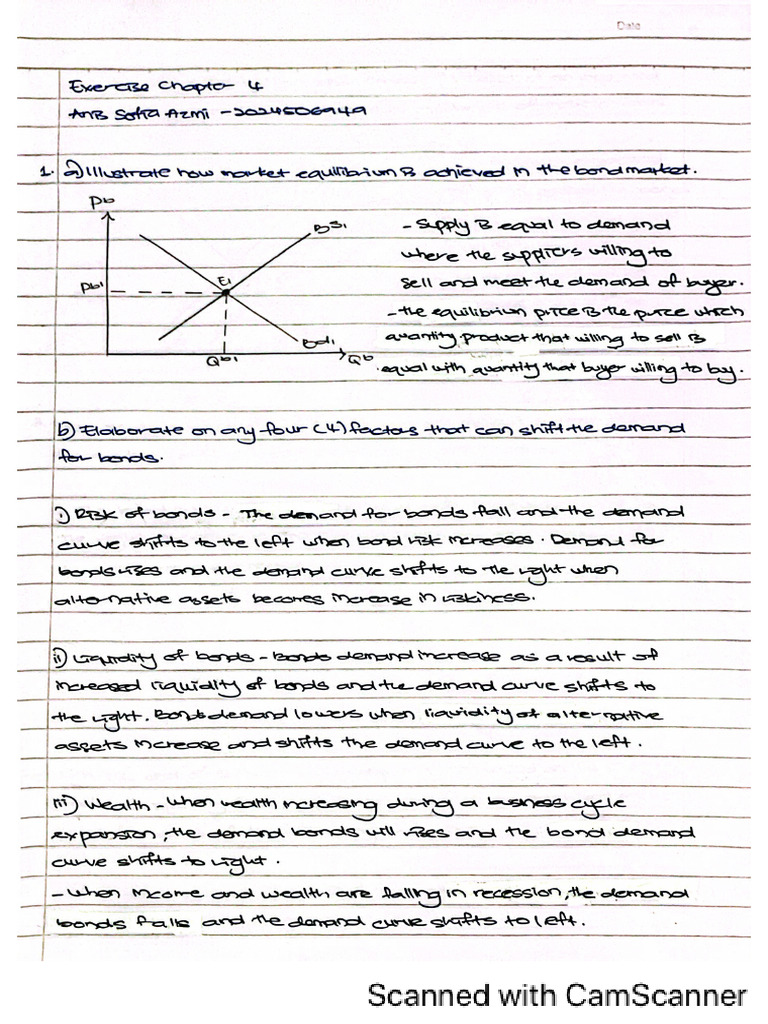 Date
Exercise Chapter 4
Anis Sofia Azmi - 2024506949
1. a) Illustrate how market equilibrium is achieved in the bond market.
Pb
Bs1
Pb1
E1
Bd1
Qb1
Qb
- Supply is equal to demand
where the suppliers willing to
sell and meet the demand of buyer.
- the equilibrium price is the price which
quantity product that willing to sell is
equal with quantity that buyer willing to buy.
b) Elaborate on any four (4) factors that can shift the demand
for bonds.
i) Risk of bonds - The demand for bonds fall and the demand
curve shifts to the left when bond risk increases. Demand for
bonds rises and the demand curve shifts to the right when
alternative assets becomes increase in riskiness.
ii) Liquidity of bonds - Bonds demand increase as a result of
increased liquidity of bonds and the demand curve shifts to
the right. Bonds demand lowers when liquidity of alternative
assets increase and shifts the demand curve to the left.
iii) Wealth - When wealth increasing during a business cycle
expansion, the demand bonds will rises and the bond demand
curve shifts to right.
- When income and wealth are falling in recession, the demand
bonds falls and the demand curve shifts to left.
Scanned with CamScanner